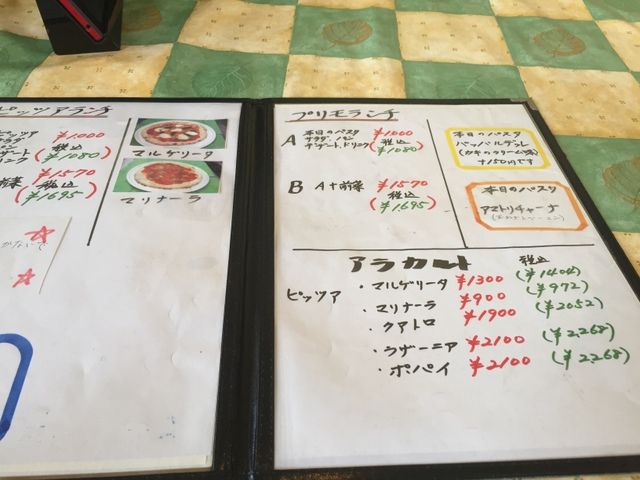 ピッツアランチ
ピッツア
サラダ
ドリンク
¥1000
(税込
¥1080)
¥1570
(税込
¥1695)
マルゲリータ
マリナーラ
プリモランチ
A 本日のパスタ
サラダ、パン
デザート、ドリンク
¥1000
(税込
¥1080)
B A+前菜
¥1570
(税込
¥1695)
本日のパスタ
パッパルデッレ
+150円です
本日のパスタ
アマトリチャーナ
アラカルト
税込
ピッツア
・マルゲリータ ¥1300 (¥1404)
・マリナーラ ¥900 (¥972)
・クアトロ ¥1900 (¥2052)
・ラザーニア ¥2100 (¥2,268)
・ポパイ ¥2100 (¥2,268)